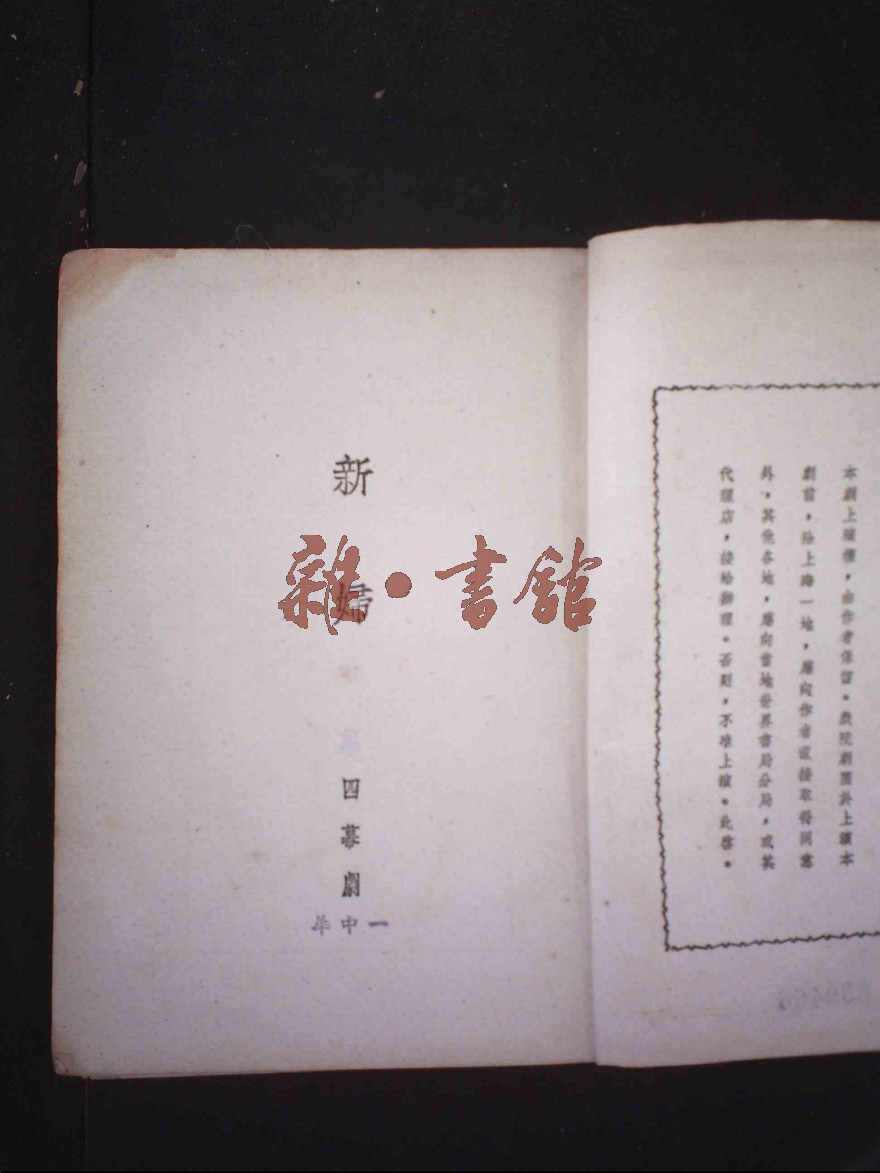 本劇上演權，由作者保留。戲院劇團於上演本
劇前，除上海一地，應向作者直接取得同意
外，其他各地，應向當地世界書局分局，或其
代理店，接給辦理。否則，不准上演。此啓。
新
婦
四幕劇
雜·書館